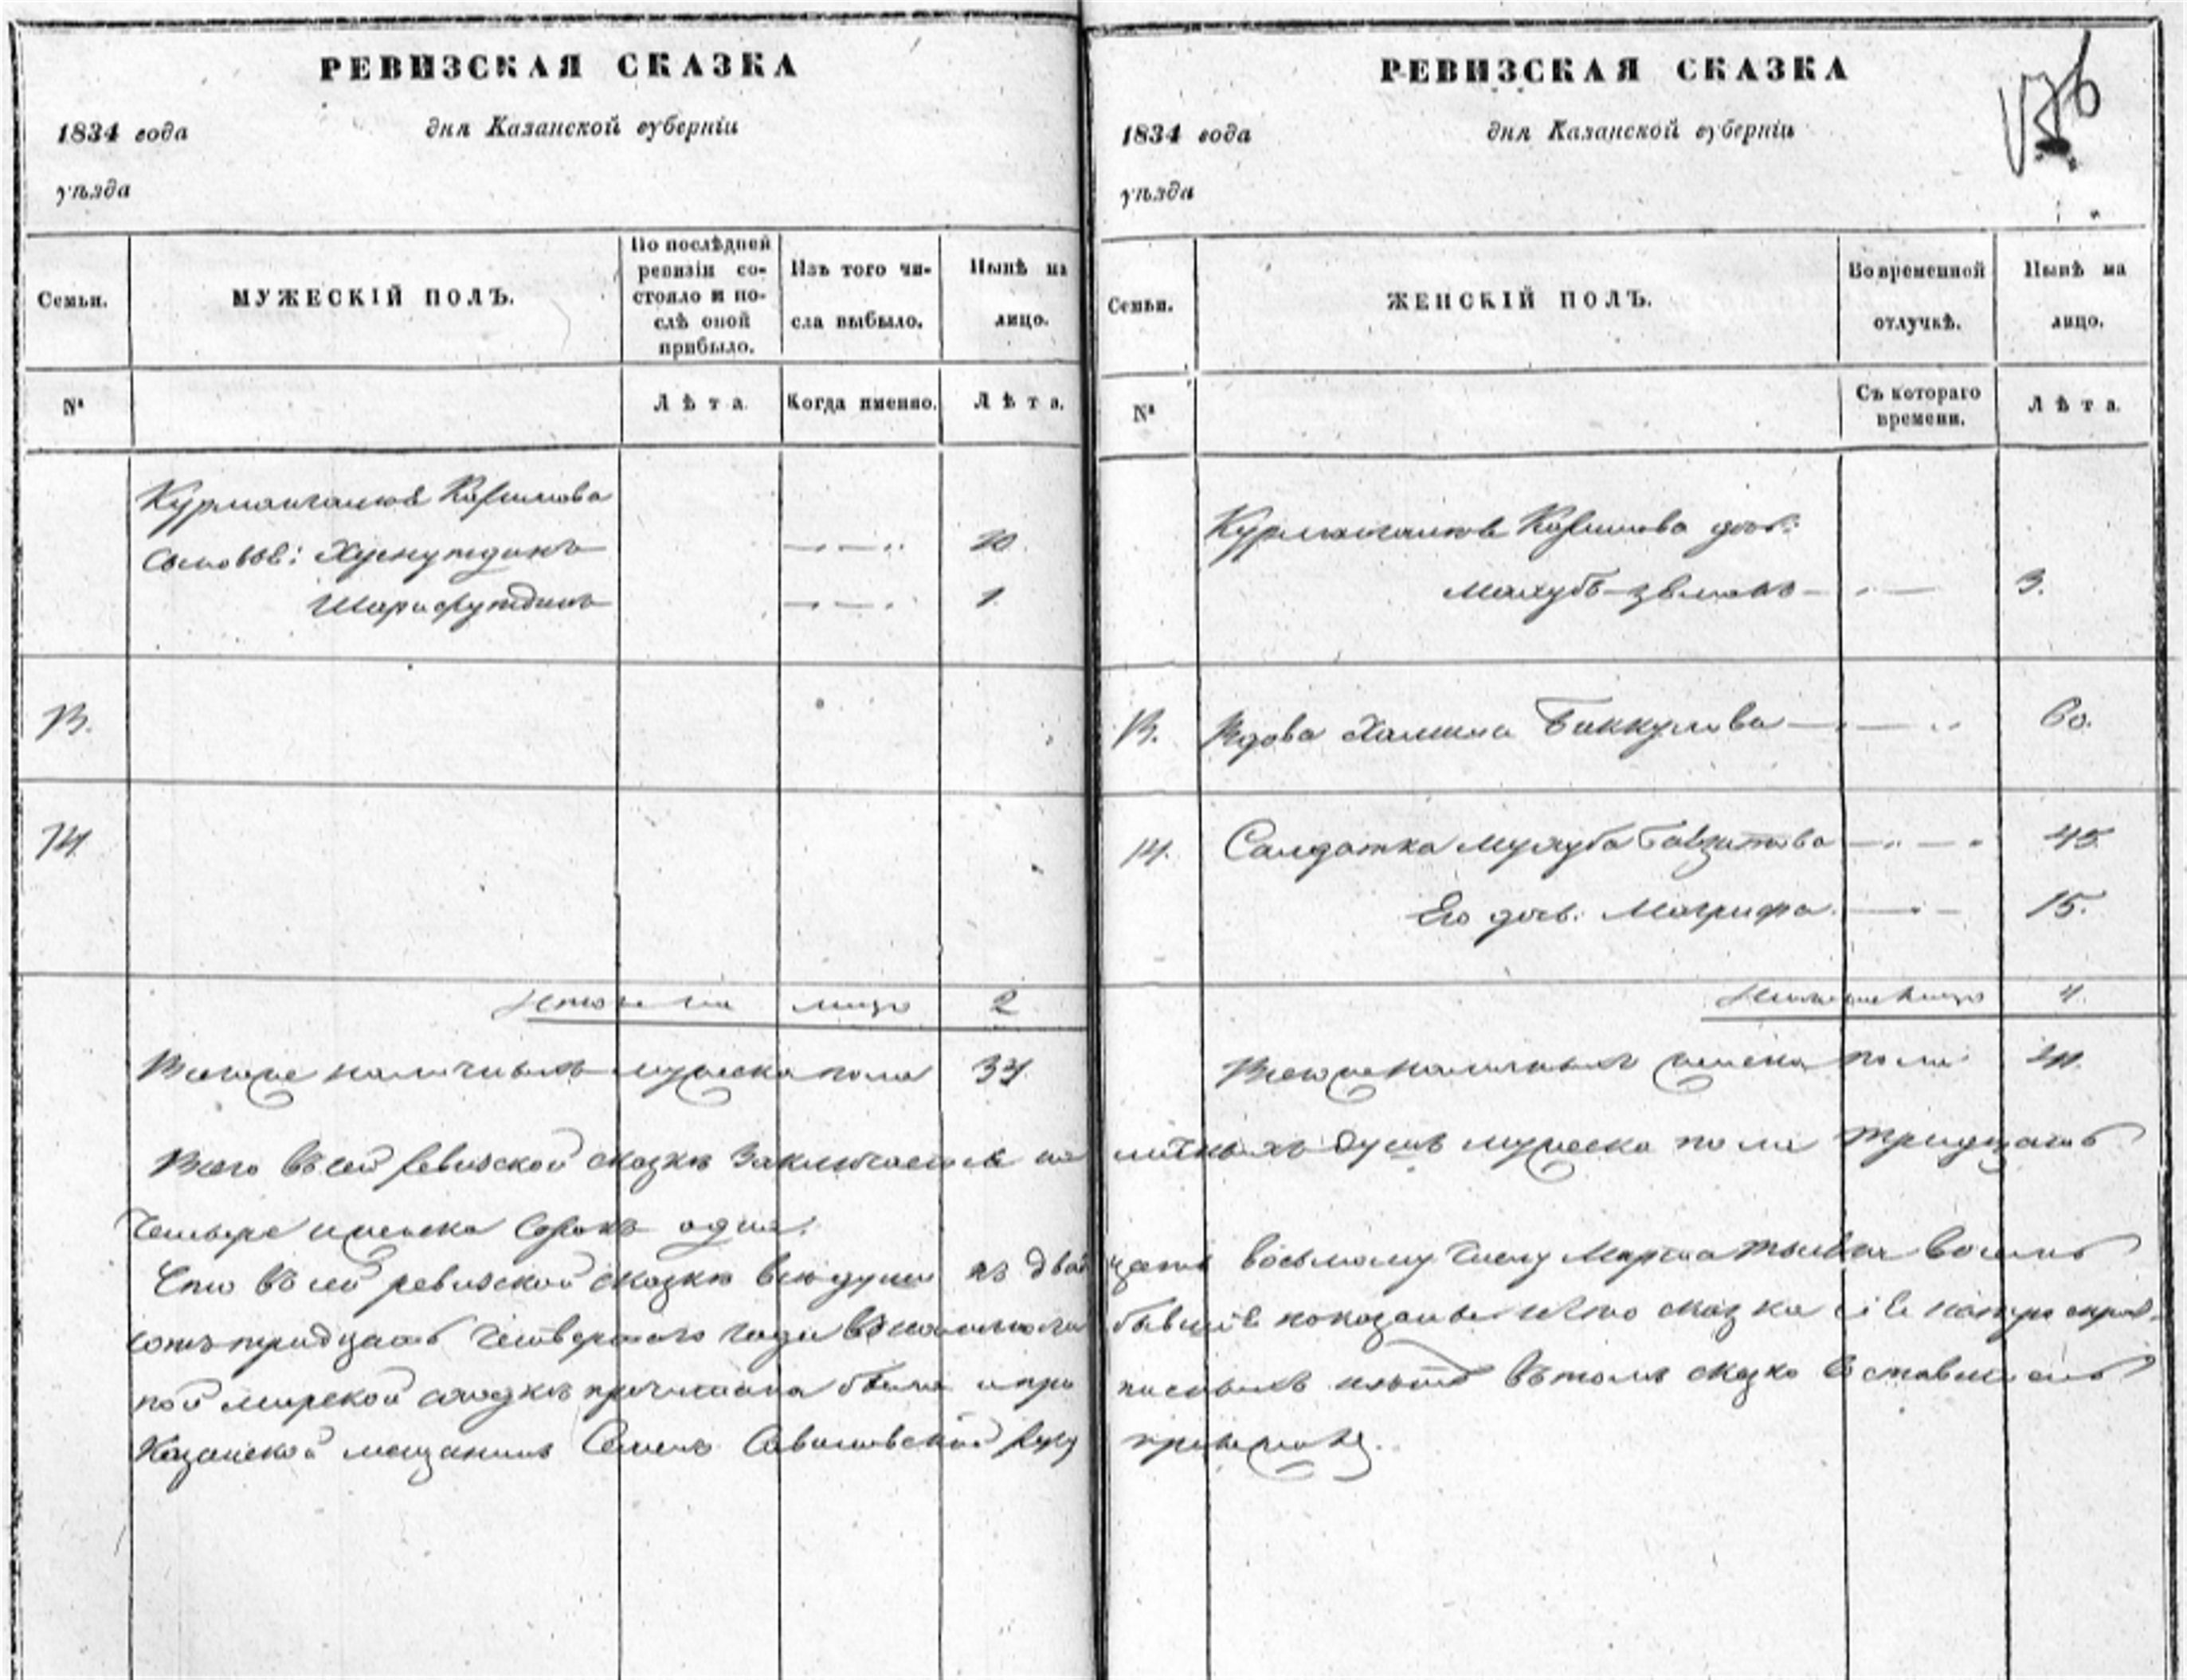 РЕВИЗСКАЯ СКАЗКА
1834 года дня Казанской губерніи
уѣзда
Семьи.
МУЖЕСКІЙ ПОЛЪ.
По послѣдней ревизіи состояло и послѣ оной прибыло.
Изъ того числа выбыло.
Нынѣ на лицо.
№
Лѣта.
Когда именно.
Лѣта.
Сыновья: Хуснутдинъ 20.
Шарифутдинъ 1.
13.
14.
Итого на лицо 2
Всего наличныхъ мужеска пола 34.
РЕВИЗСКАЯ СКАЗКА
1834 года дня Казанской губерніи
уѣзда
Семьи.
ЖЕНСКІЙ ПОЛЪ.
Во временной отлучкѣ.
Нынѣ на лицо.
№
Съ котораго времени.
Лѣта.
Каримова доч: 3.
13. Вдова Халима Биккулова 60.
14. Салдатка 45.
Его доч: Магрифа 15.
4.
Всего наличныхъ женска пола 41.
Всего въ сей ревизской сказкѣ заключается наличныхъ душъ мужеска пола тридцать
четыре и женска сорокъ одна.
Что въ сей ревизской сказкѣ все души къ двадцать восьмому числу Марта тысяча восемь
сотъ тридцать четвертаго года бывшіе показаны и что сказка сія
мирской сходкѣ прочитана была и въ томъ
Казанской мещанинъ Семенъ руку приложилъ.